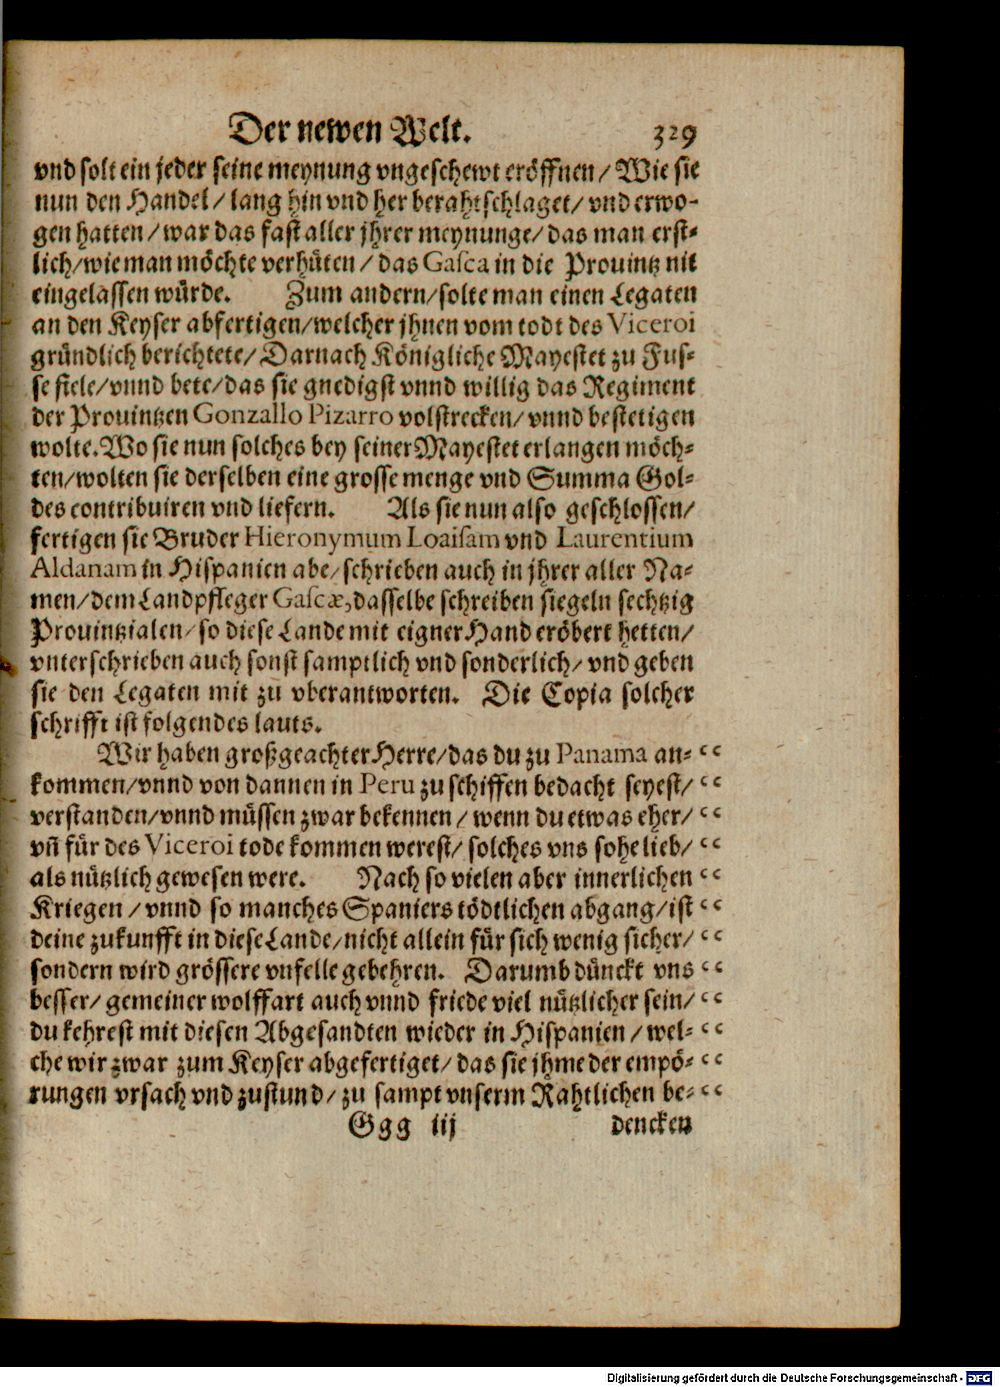 Der newen Welt. 329
vnd solt ein jeder seine meynung vngeschewt eröffnen / Wie sie
nun den Handel / lang hin vnd her berahtschlaget / vnd erwo-
gen hatten / war das fast aller jhrer meynunge / das man erst-
lich / wie man möchte verhüten / das Gasca in die Prouintz nit
eingelassen würde. Zum andern / solte man einen Legaten
an den Keyser abfertigen / welcher jhnen vom todt des Viceroi
gründlich berichtete / Darnach Königliche Mayestet zu Fus-
se fiele / vnnd bete / das sie gnedigst vnnd willig das Regiment
der Prouintzen Gonzallo Pizarro volstrecken / vnnd bestetigen
wolte. Wo sie nun solches bey seiner Mayestet erlangen möch-
ten / wolten sie derselben eine grosse menge vnd Summa Gol-
des contribuiren vnd liefern. Als sie nun also geschlossen /
fertigen sie Bruder Hieronymum Loaisam vnd Laurentium
Aldanam in Hispanien abe / schrieben auch in jhrer aller Na-
men / dem Landpfleger Gascæ, dasselbe schreiben siegeln sechtzig
Prouintzialen / so diese Lande mit eigner Hand eröbert hetten /
vnterschrieben auch sonst samptlich vnd sonderlich / vnd geben
sie den Legaten mit zu vberantworten. Die Copia solcher
schrifft ist folgendes lauts.
Wir haben großgeachter Herre / das du zu Panama an- “
kommen / vnnd von dannen in Peru zu schiffen bedacht seyest / “
verstanden / vnnd müssen zwar bekennen / wenn du etwas eher / “
vñ für des Viceroi tode kommen werest / solches vns so he lieb / “
als nützlich gewesen were. Nach so vielen aber innerlichen “
Kriegen / vnnd so manches Spaniers tödtlichen abgang / ist “
deine zukunfft in diese Lande / nicht allein für sich wenig sicher / “
sondern wird grössere vnfelle gebehren. Darumb dünckt vns “
besser / gemeiner wolffart auch vnnd friede viel nützlicher sein / “
du kehrest mit diesen Abgesandten wieder in Hispanien / wel- “
che wir zwar zum Keyser abgefertiget / das sie jhme der empö- “
rungen vrsach vnd zustund / zu sampt vnserm Rahtlichen be- “
Ggg iij dencken
Digitalisierung gefördert durch die Deutsche Forschungsgemeinschaft - DFG